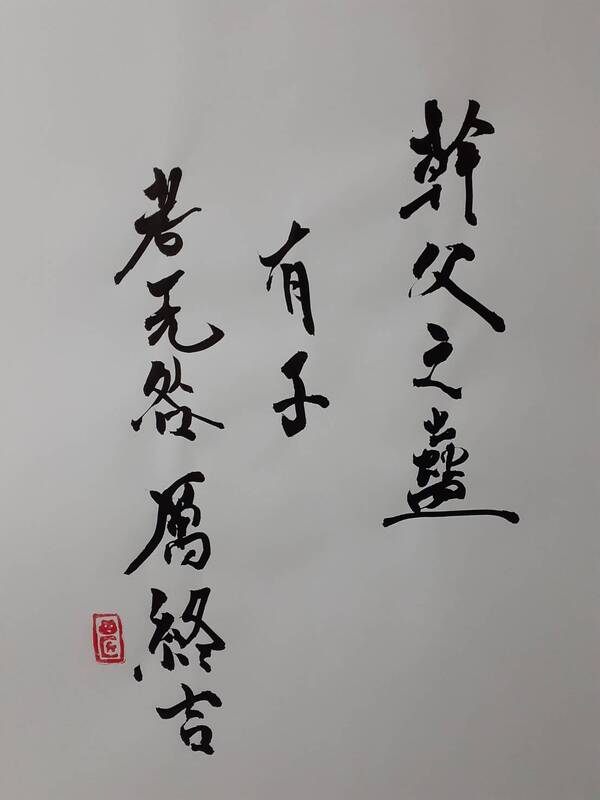 幹父之蠱
有子
考无咎厲終吉